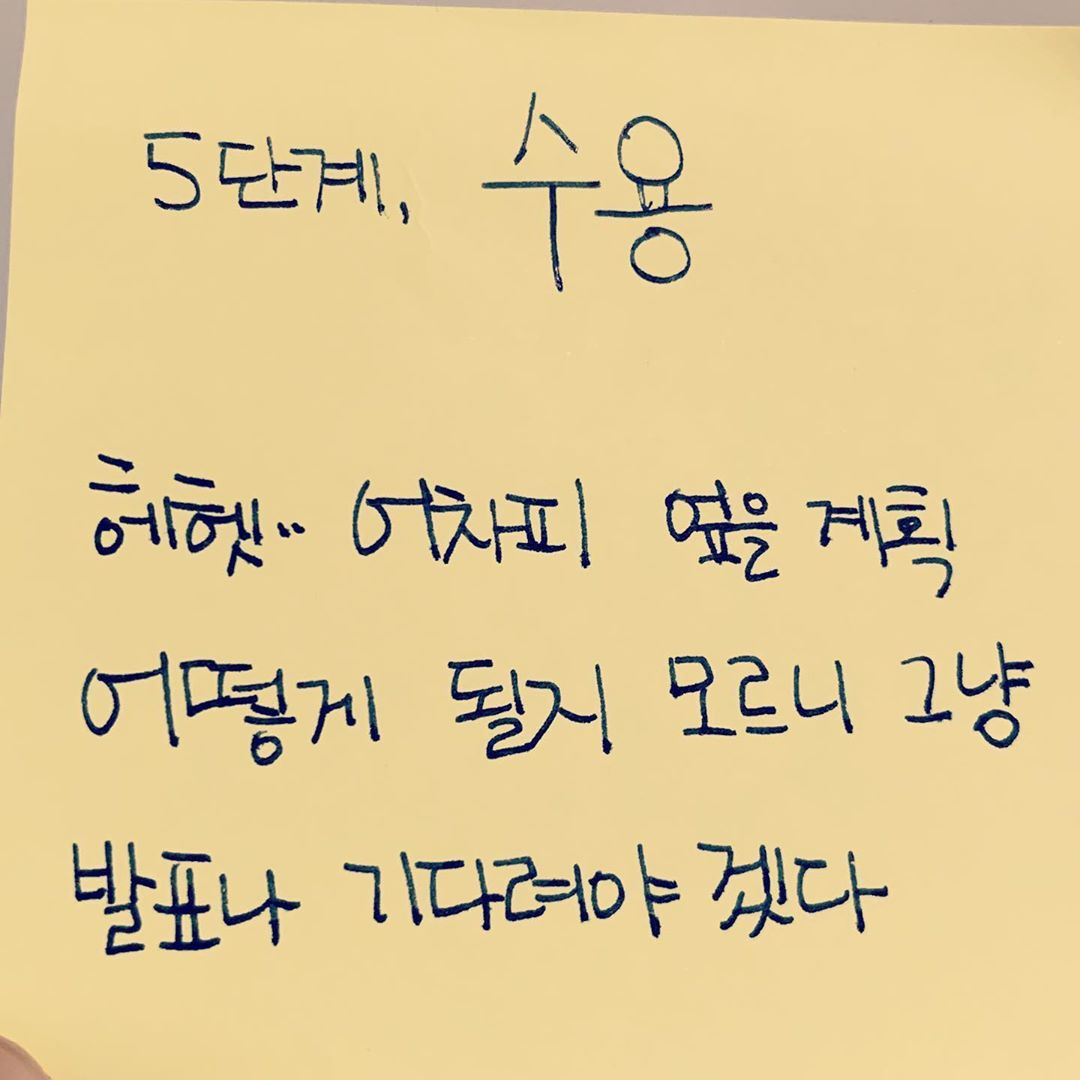 5단계, 수용
헤헷.. 어차피 엎을 계획
어떻게 될지 모르니 그냥
발표나 기다려야 겠다